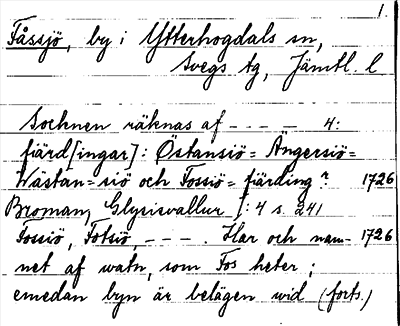 1.
Fåssjö, by i Ytterhogdals sn,
Svegs tg, Jämtl. l
Socknen räknas af - - - 4:
fiärd[ingar]: Östansiö= Ängersiö=
Wästan=siö och Fossiö=fiärding? 1726
Broman, Glysisvallur I: 4 s. 241
Fossiö, Fotsiö, - - - . Har och nam- 1726
net af watn, som Fos heter;
emedan byn är belägen wid (forts.)